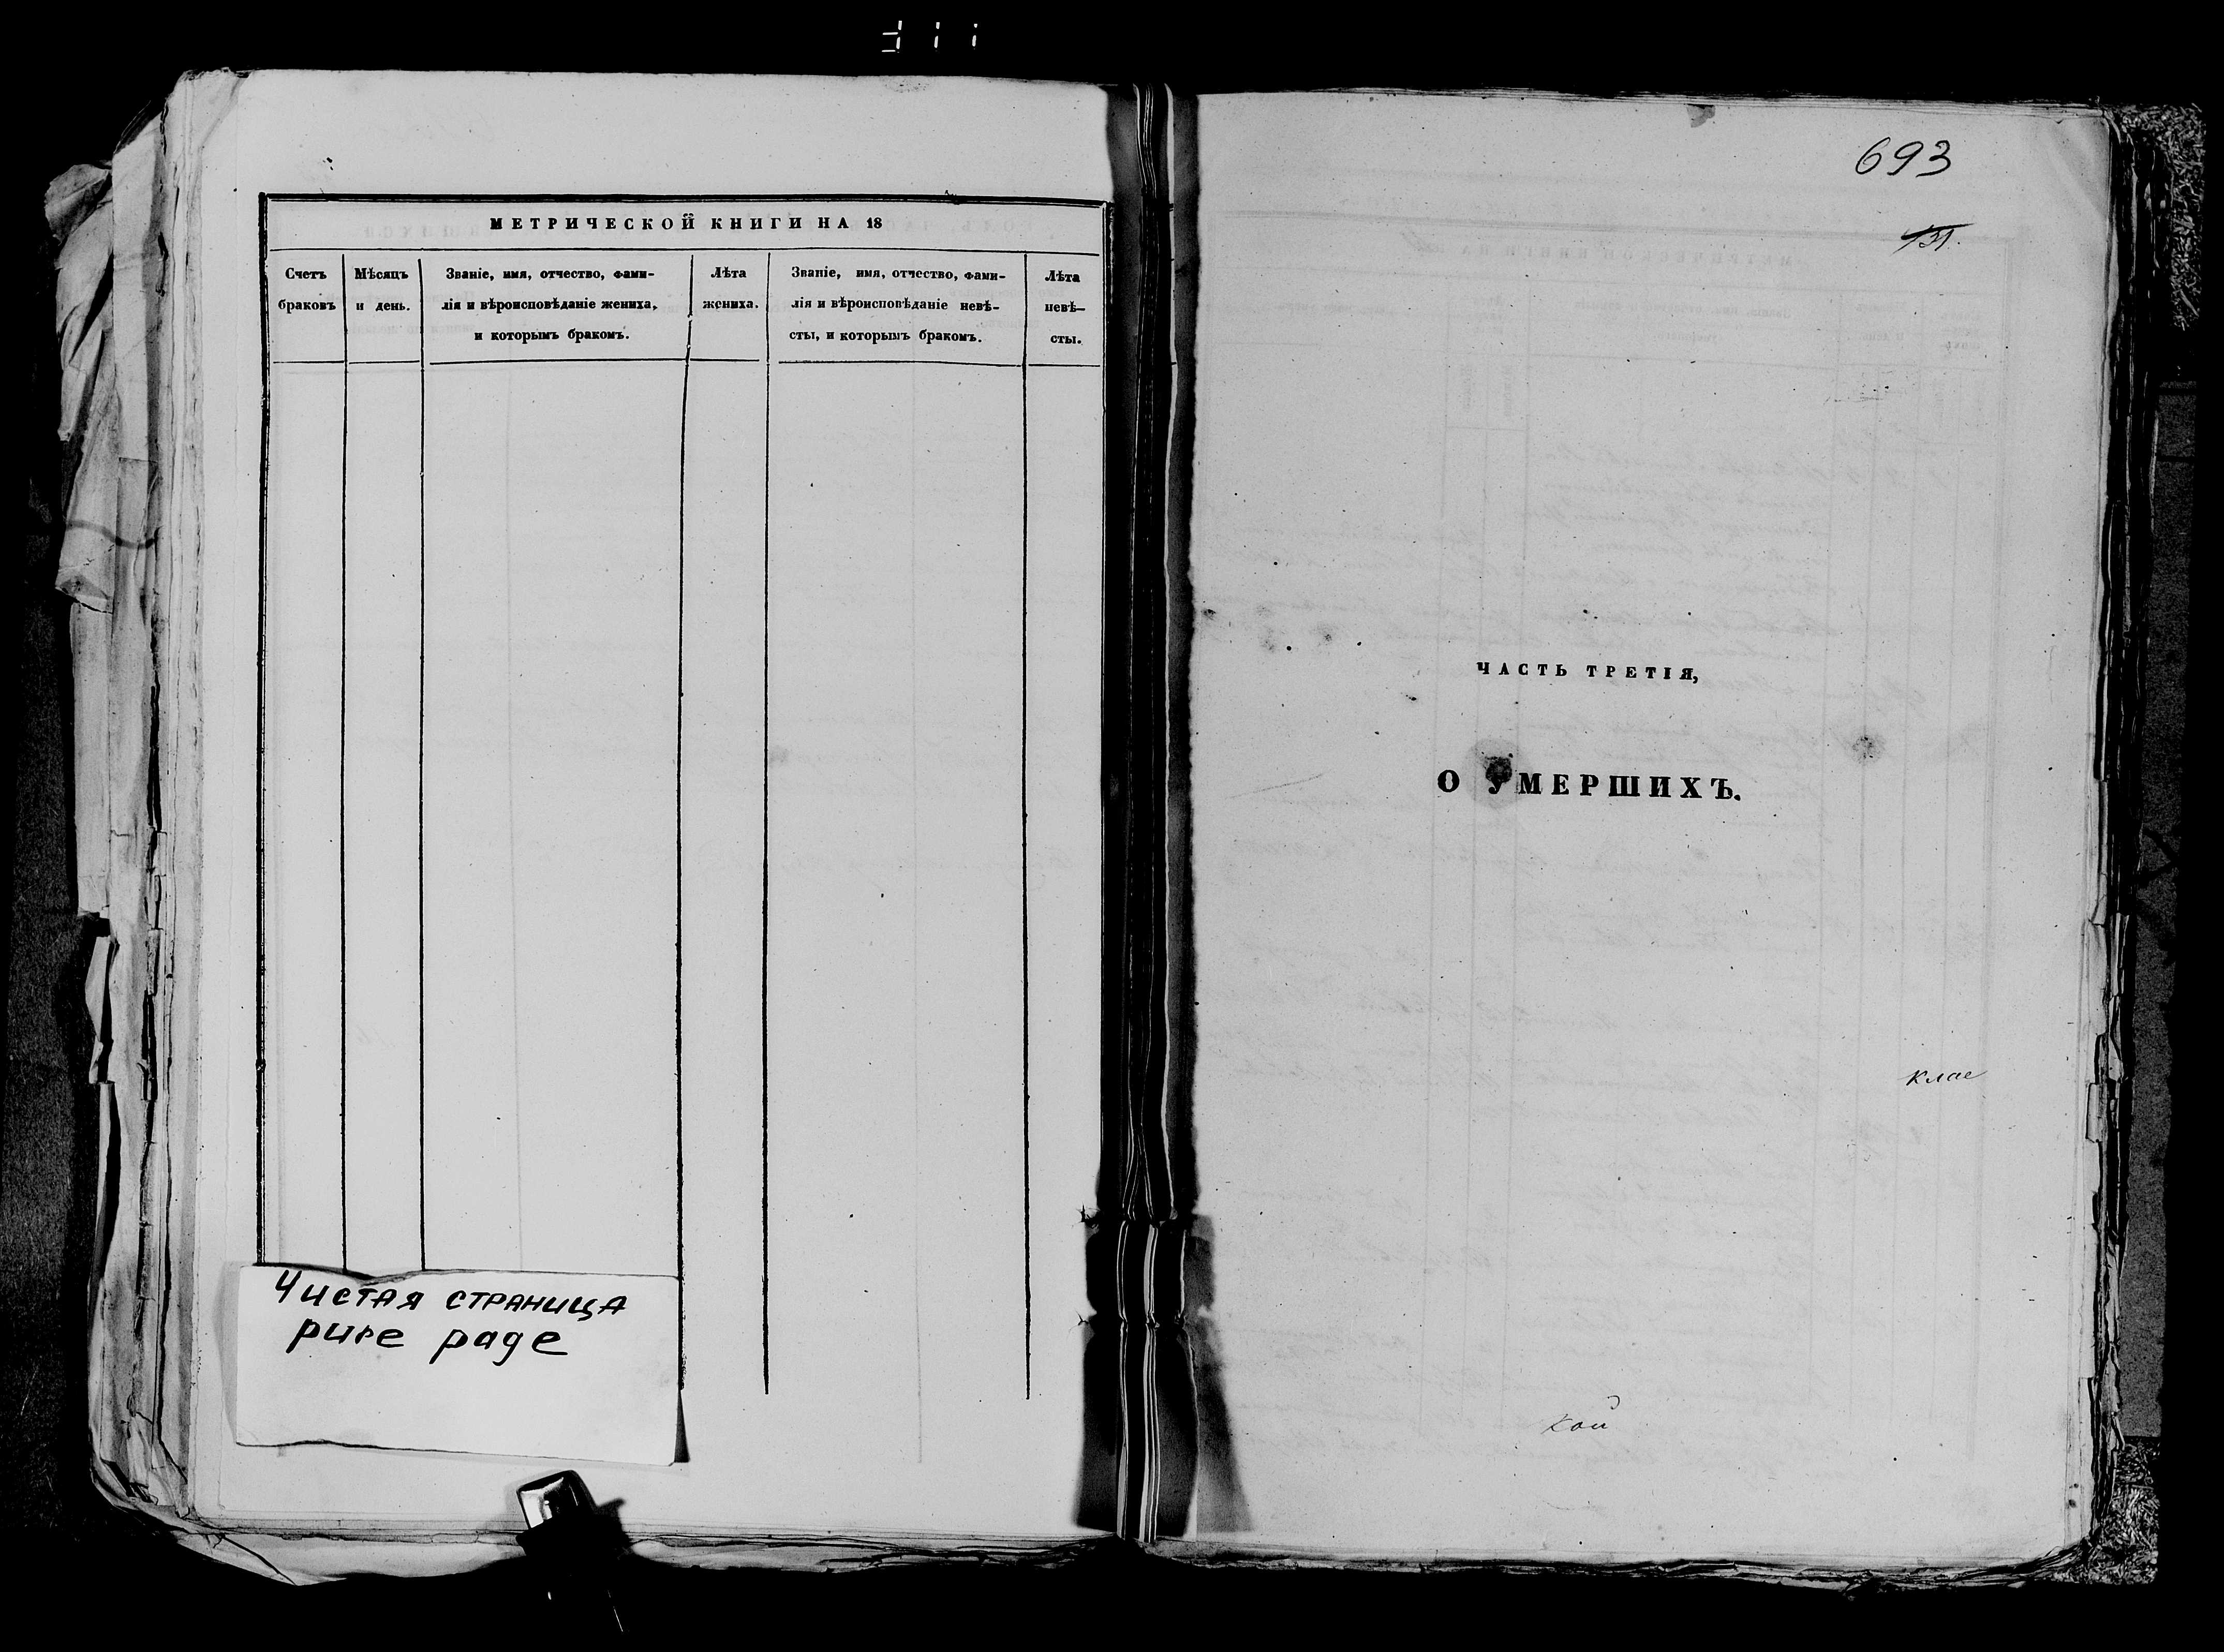 МЕТРИЧЕСКОЙ КНИГИ НА 18
Счетъ браковъ
Мѣсяцъ и день.
Званіе, имя, отчество, фами-
лія и вѣроисповѣданіе жениха,
и которымъ бракомъ.
Лѣта жениха.
Званіе, имя, отчество, фами-
лія и вѣроисповѣданіе невѣ-
сты, и которымъ бракомъ.
Лѣта невѣ-
сты.
Чистая страница
pure page
693
131.
ЧАСТЬ ТРЕТІЯ,
О УМЕРШИХЪ.
клае
кой